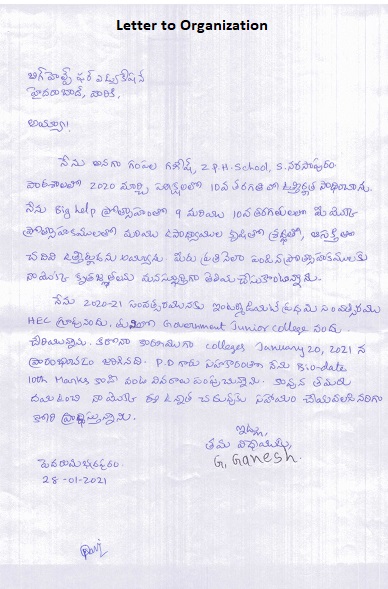 Letter to Organization
బిగ్ హెల్ప్ ఫర్ ఎడ్యుకేషన్
హైదరాబాద్, వారికి,
అయ్యా!
నేను అనగా గంపల గణేష్, Z.P.H. School, S. నరసాపురం
పాఠశాలలో 2020 మార్చి పరీక్షలలో 10వ తరగతి లో ఉత్తీర్ణత సాధించాను.
నేను Big help ప్రోత్సాహంతో 9 మరియు 10వ తరగతులలో మీ యొక్క
ప్రోత్సాహకములతో మరియు ఉపాధ్యాయుల కృషితో శ్రద్ధతో, ఆసక్తితో
చదివి ఉత్తీర్ణుడను అయ్యాను. మీరు ప్రతి నెలా పంపిన ప్రోత్సాహకములకు
నా యొక్క కృతజ్ఞతలను మనస్ఫూర్తిగా తెలియచేసుకొంటున్నాను.
నేను 2020-21 సంవత్సరమునకు ఇంటర్మీడియట్ ప్రథమ సంవత్సరము
HEC గ్రూపునందు, Government Junior college నందు
చేరియున్నాను. కరోనా కారణముగా colleges January 20, 2021 న
ప్రారంభించడం జరిగినది. P.D గారు సహకారంతో నేను Bio-data
10th Marks కాపీ వంటి వివరాలు పంపుచున్నాను. కావున తమరు
దయఉంచి నా యొక్క ఈ ఉన్నత చదువుకు సహాయం చేయవలసినదిగా
కోరి ప్రార్థిస్తున్నాను.
ఇట్లు,
తమ విధేయుడు,
G. Ganesh.
పెదరామభద్రపురం
28-01-2021